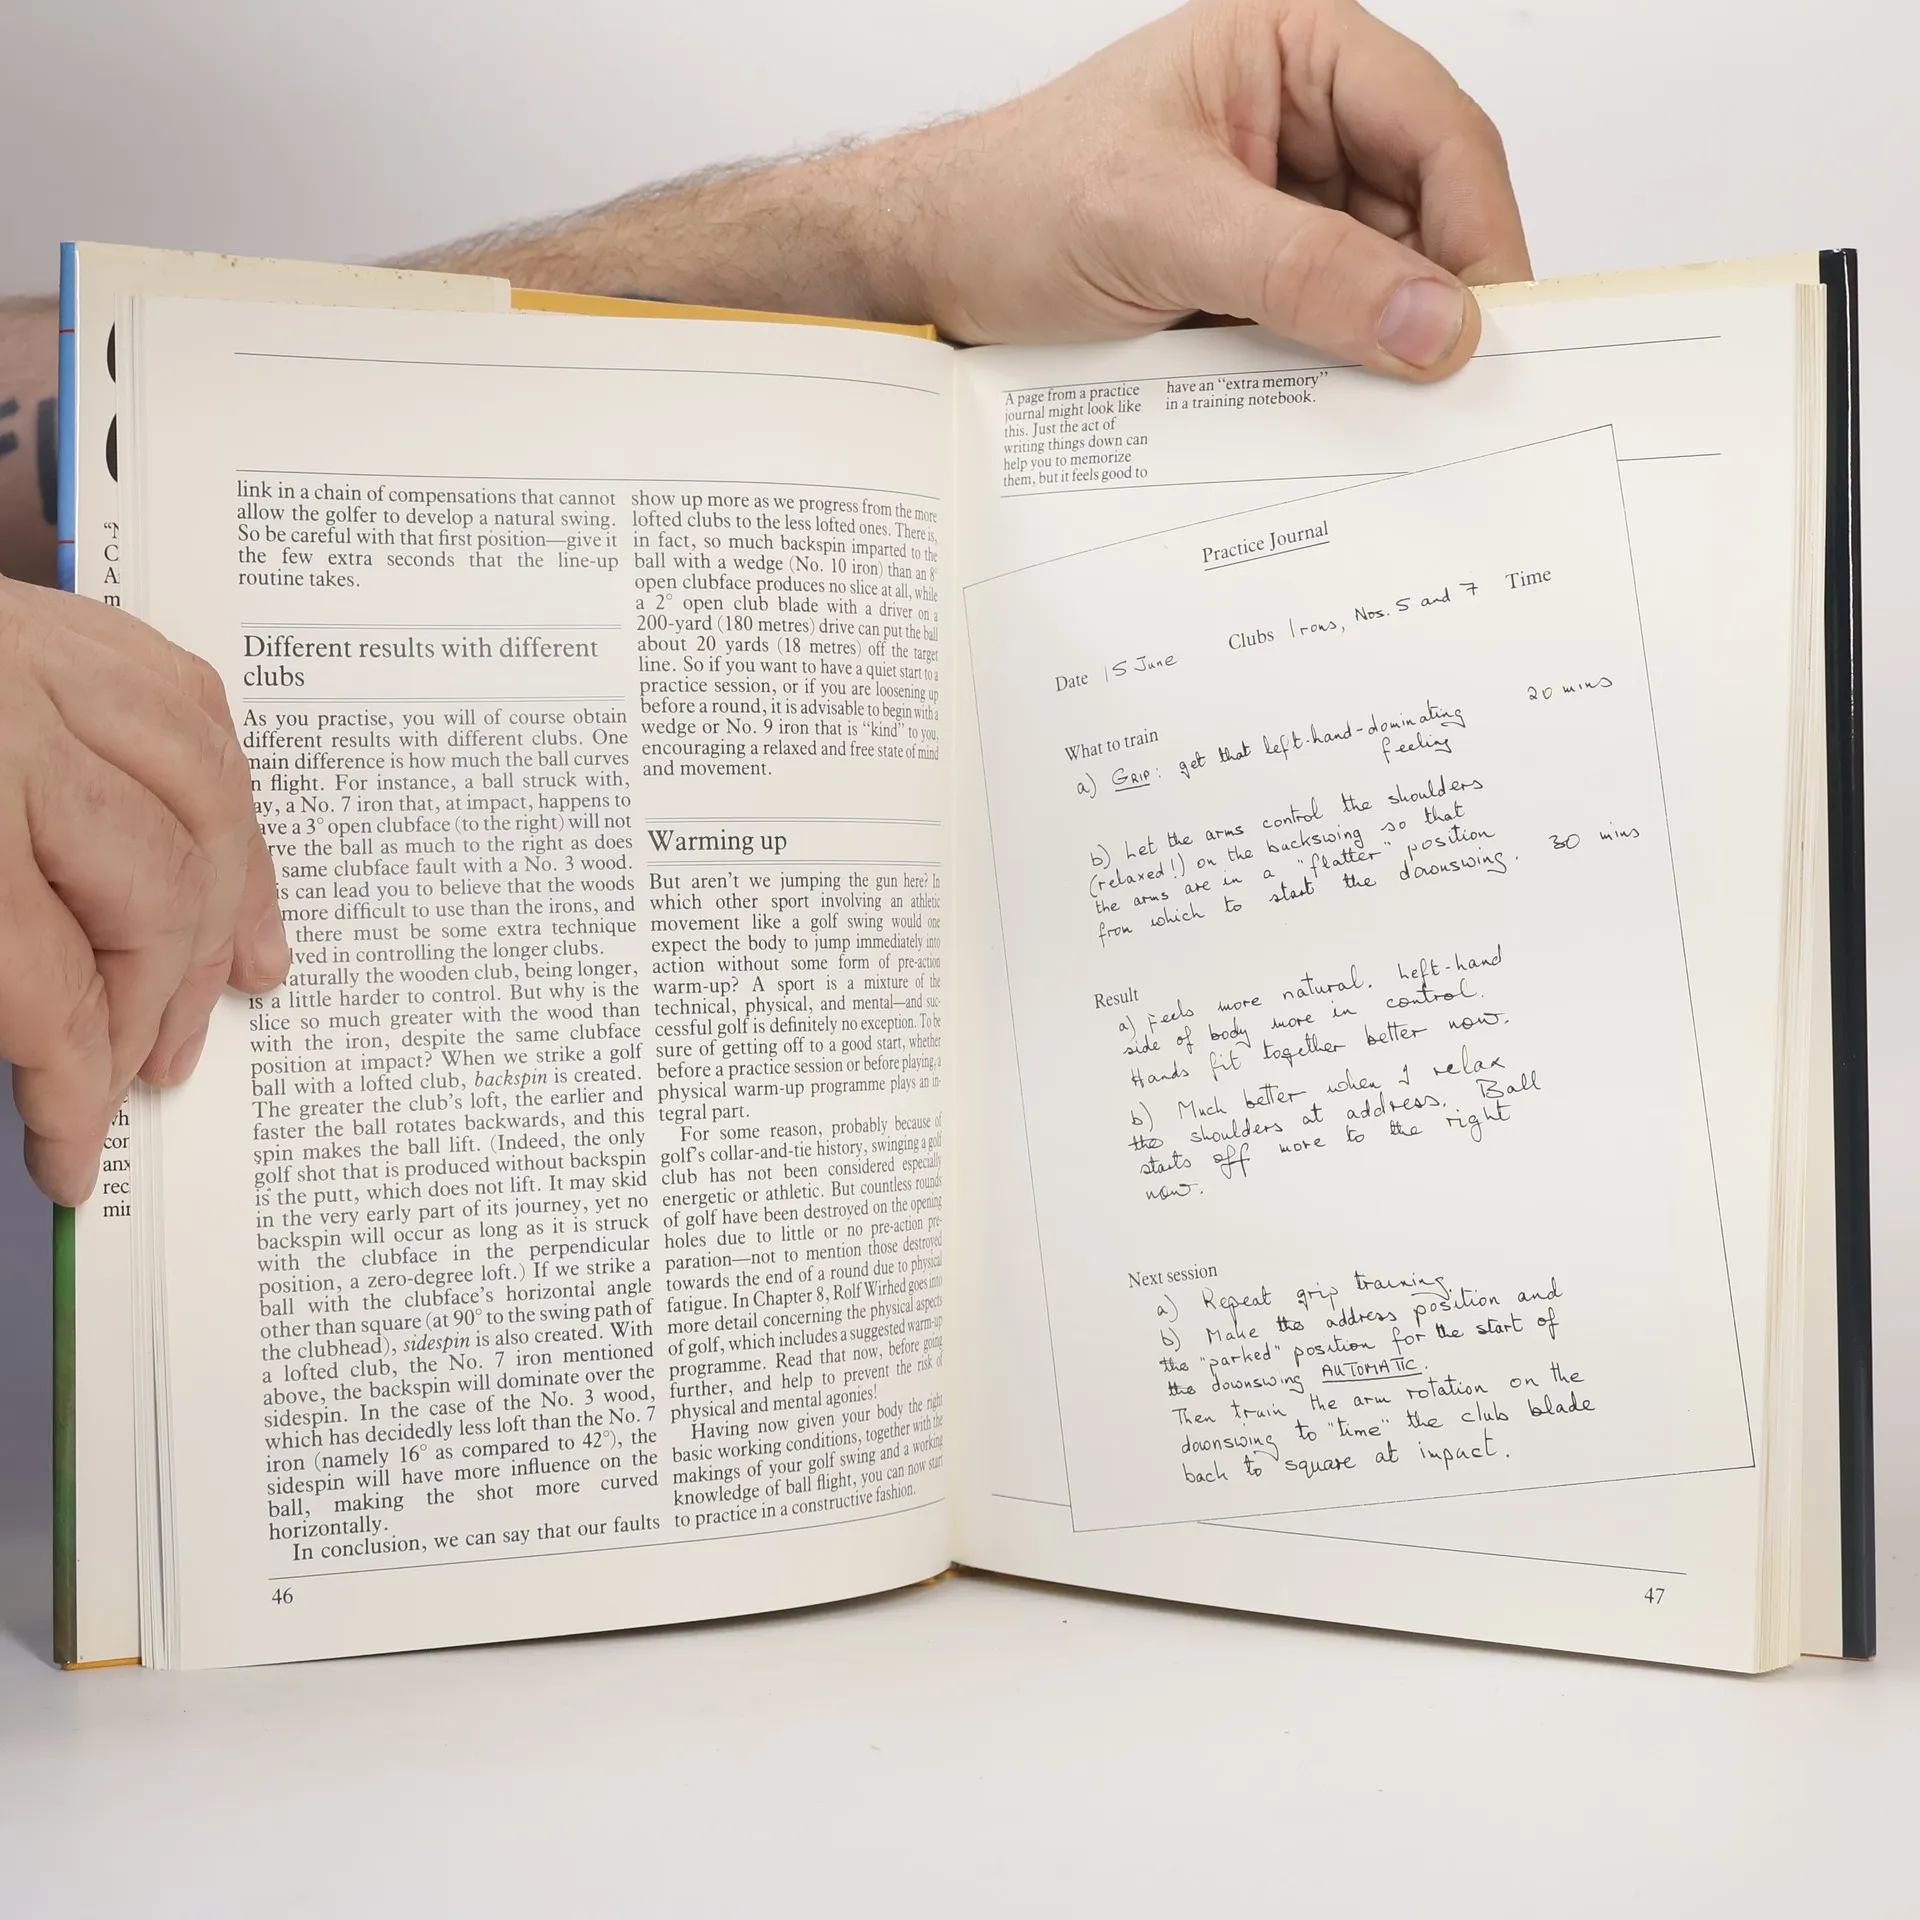 link in a chain of compensations that cannot
allow the golfer to develop a natural swing.
So be careful with that first position—give it
the few extra seconds that the line-up
routine takes.
Different results with different
clubs
As you practise, you will of course obtain
different results with different clubs. One
main difference is how much the ball curves
n flight. For instance, a ball struck with,
ay, a No. 7 iron that, at impact, happens to
ave a 3° open clubface (to the right) will not
rve the ball as much to the right as does
same clubface fault with a No. 3 wood.
is can lead you to believe that the woods
more difficult to use than the irons, and
there must be some extra technique
lved in controlling the longer clubs.
aturally the wooden club, being longer,
is a little harder to control. But why is the
slice so much greater with the wood than
with the iron, despite the same clubface
position at impact? When we strike a golf
ball with a lofted club, backspin is created.
The greater the club's loft, the earlier and
faster the ball rotates backwards, and this
spin makes the ball lift. (Indeed, the only
golf shot that is produced without backspin
is the putt, which does not lift. It may skid
in the very early part of its journey, yet no
backspin will occur as long as it is struck
with the clubface in the perpendicular
position, a zero-degree loft.) If we strike a
ball with the clubface's horizontal angle
other than square (at 90° to the swing path of
the clubhead), sidespin is also created. With
a lofted club, the No. 7 iron mentioned
above, the backspin will dominate over the
sidespin. In the case of the No. 3 wood,
which has decidedly less loft than the No. 7
iron (namely 16° as compared to 42°), the
sidespin will have more influence on the
ball, making the shot more curved
horizontally.
In conclusion, we can say that our faults
show up more as we progress from the more
lofted clubs to the less lofted ones. There is,
in fact, so much backspin imparted to the
ball with a wedge (No. 10 iron) than an 8°
open clubface produces no slice at all, while
a 2° open club blade with a driver on a
200-yard (180 metres) drive can put the ball
about 20 yards (18 metres) off the target
line. So if you want to have a quiet start to a
practice session, or if you are loosening up
before a round, it is advisable to begin with a
wedge or No. 9 iron that is "kind" to you,
encouraging a relaxed and free state of mind
and movement.
Warming up
But aren't we jumping the gun here? In
which other sport involving an athletic
movement like a golf swing would one
expect the body to jump immediately into
action without some form of pre-action
warm-up? A sport is a mixture of the
technical, physical, and mental—and suc-
cessful golf is definitely no exception. To be
sure of getting off to a good start, whether
before a practice session or before playing, a
physical warm-up programme plays an in-
tegral part.
For some reason, probably because of
golf's collar-and-tie history, swinging a golf
club has not been considered especially
energetic or athletic. But countless rounds
of golf have been destroyed on the opening
holes due to little or no pre-action pre-
paration—not to mention those destroyed
towards the end of a round due to physical
fatigue. In Chapter 8, Rolf Wirhed goes into
more detail concerning the physical aspects
of golf, which includes a suggested warm-up
programme. Read that now, before going
further, and help to prevent the risk of
physical and mental agonies!
Having now given your body the right
basic working conditions, together with the
makings of your golf swing and a working
knowledge of ball flight, you can now start
to practice in a constructive fashion.
46
A page from a practice
journal might look like
this. Just the act of
writing things down can
help you to memorize
them, but it feels good to
have an "extra memory"
in a training notebook.
Practice Journal
Date 15 June Clubs Irons, Nos. 5 and 7 Time
What to train
a) GRIP: get that left-hand-dominating 20 mins
feeling
b) Let the arms control the shoulders
(relaxed!) on the backswing so that
the arms are in a "flatter" position
from which to start the downswing. 30 mins
Result
a) Feels more natural. Left-hand
side of body more in control.
Hands fit together better now.
b) Much better when I relax
the shoulders at address. Ball
starts off more to the right
now.
Next session
a) Repeat grip training.
b) Make the address position and
the "parked" position for the start of
the downswing AUTOMATIC.
Then train the arm rotation on the
downswing to "time" the club blade
back to square at impact.
47
"N
C
A
m
wh
cor
anx
rec
min